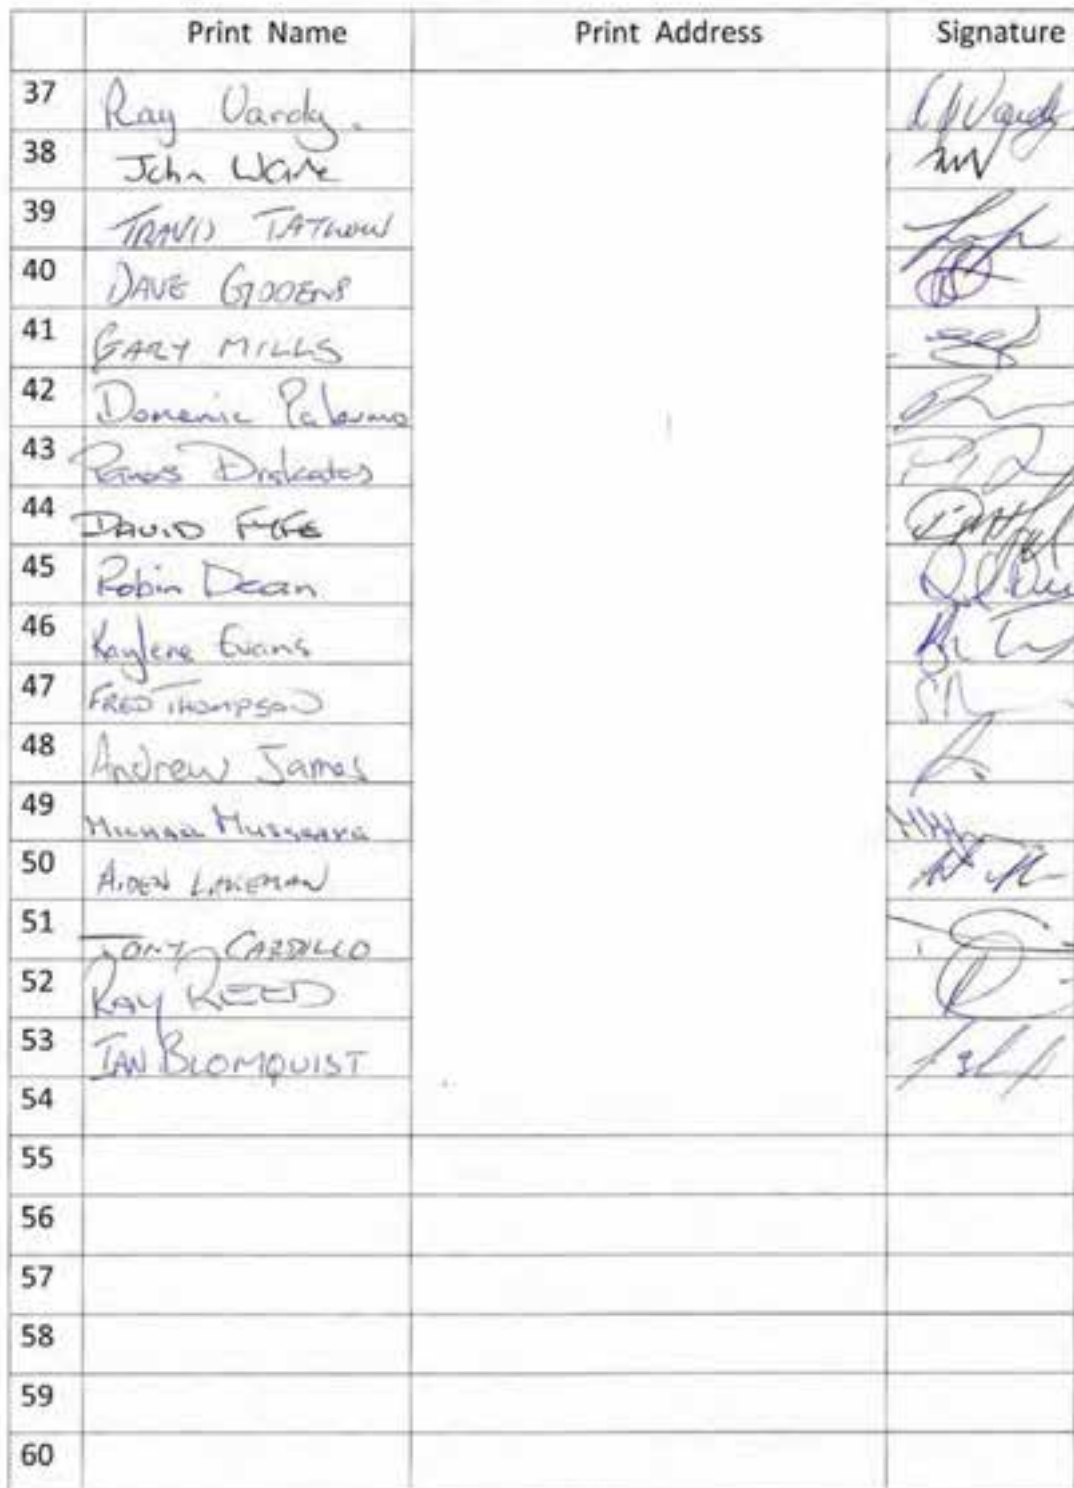 Print Name Print Address Signature
37 Ray Vardy.
38 John Ware
39 TRAVIS TATLOW
40 DAVE GIDDENS
41 GARY MILLS
42 Domenic Palermo
43 Diskatos
44 DAVID FYFE
45 Robin Dean
46 Kaylene Evans
47 FRED THOMPSON
48 Andrew James
49 MICHAEL MUSGRAVE
50 AIDEN LAKEMAN
51 TONY CARDILLO
52 RAY REED
53 IAN BLOMQUIST
54
55
56
57
58
59
60